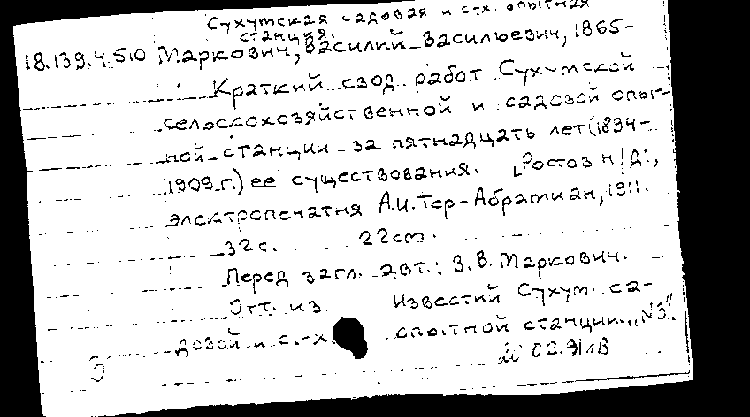 Сухумская садовая и с.х. опытная
станция.
18.139.4.510 Маркович, Василий Васильевич, 1865-
Краткий свод работ Сухумской
сельскохозяйственной и садовой опыт-
ной станции за пятнадцать лет (1894-
1909 г.) ее существования. Ростов н/Д.,
электропечатня А.И. Тер-Абрамиан, 1911.
32 с. 22 cm.
Перед загл. авт.: В.В. Маркович.
Отт. из Известий Сухум. са-
довой и с.-х. опытной станции. "№3".